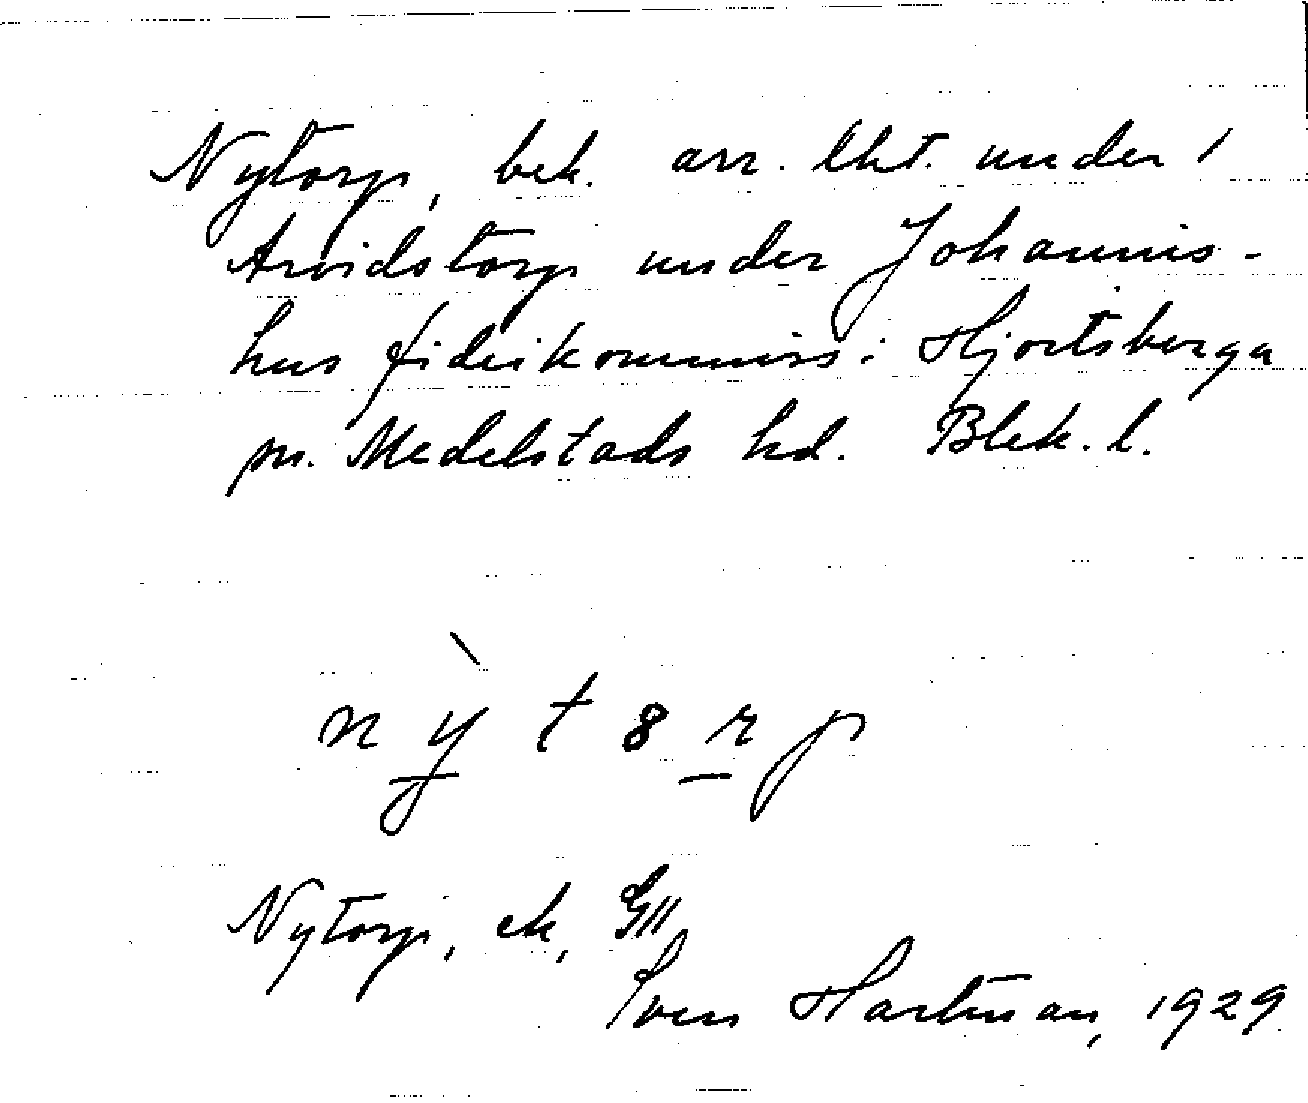 Nytorp, bek. arr. lht. under 1
Arvidstorp under Johannis-
hus fideikommiss i Hjortsberga
sn. Medelstads hd. Blek. l.
nỳt8rp
Nytorp, ek, GII
Sven Hartman, 1929